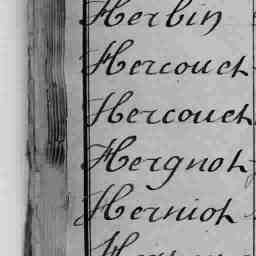 Herbin
Hercouet
Hercouet
Hergnot
Herniot